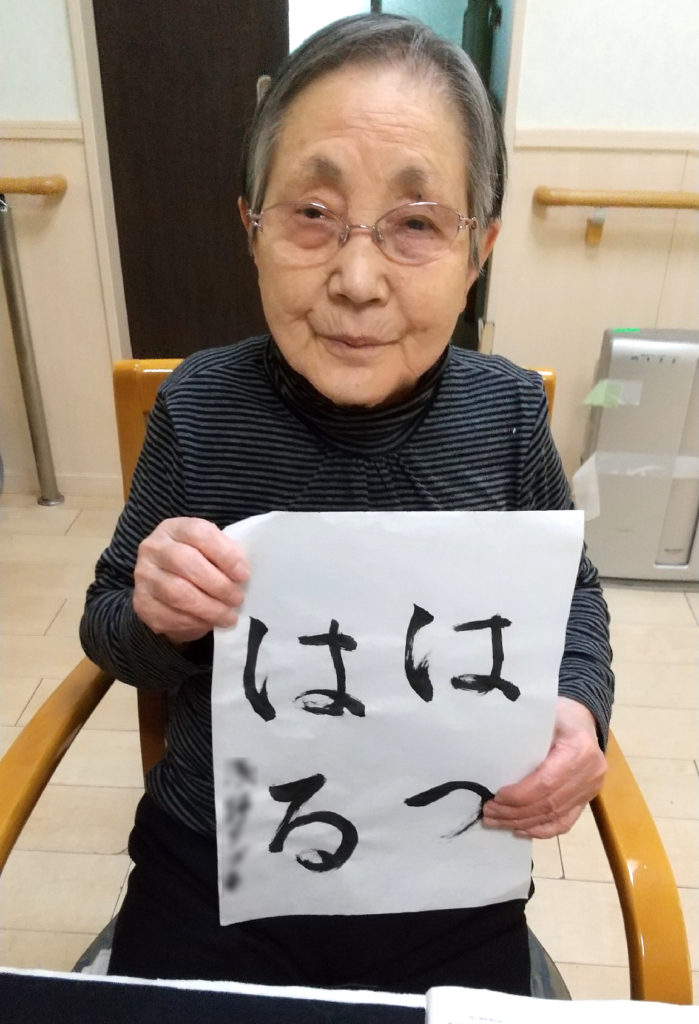 はつ
はる